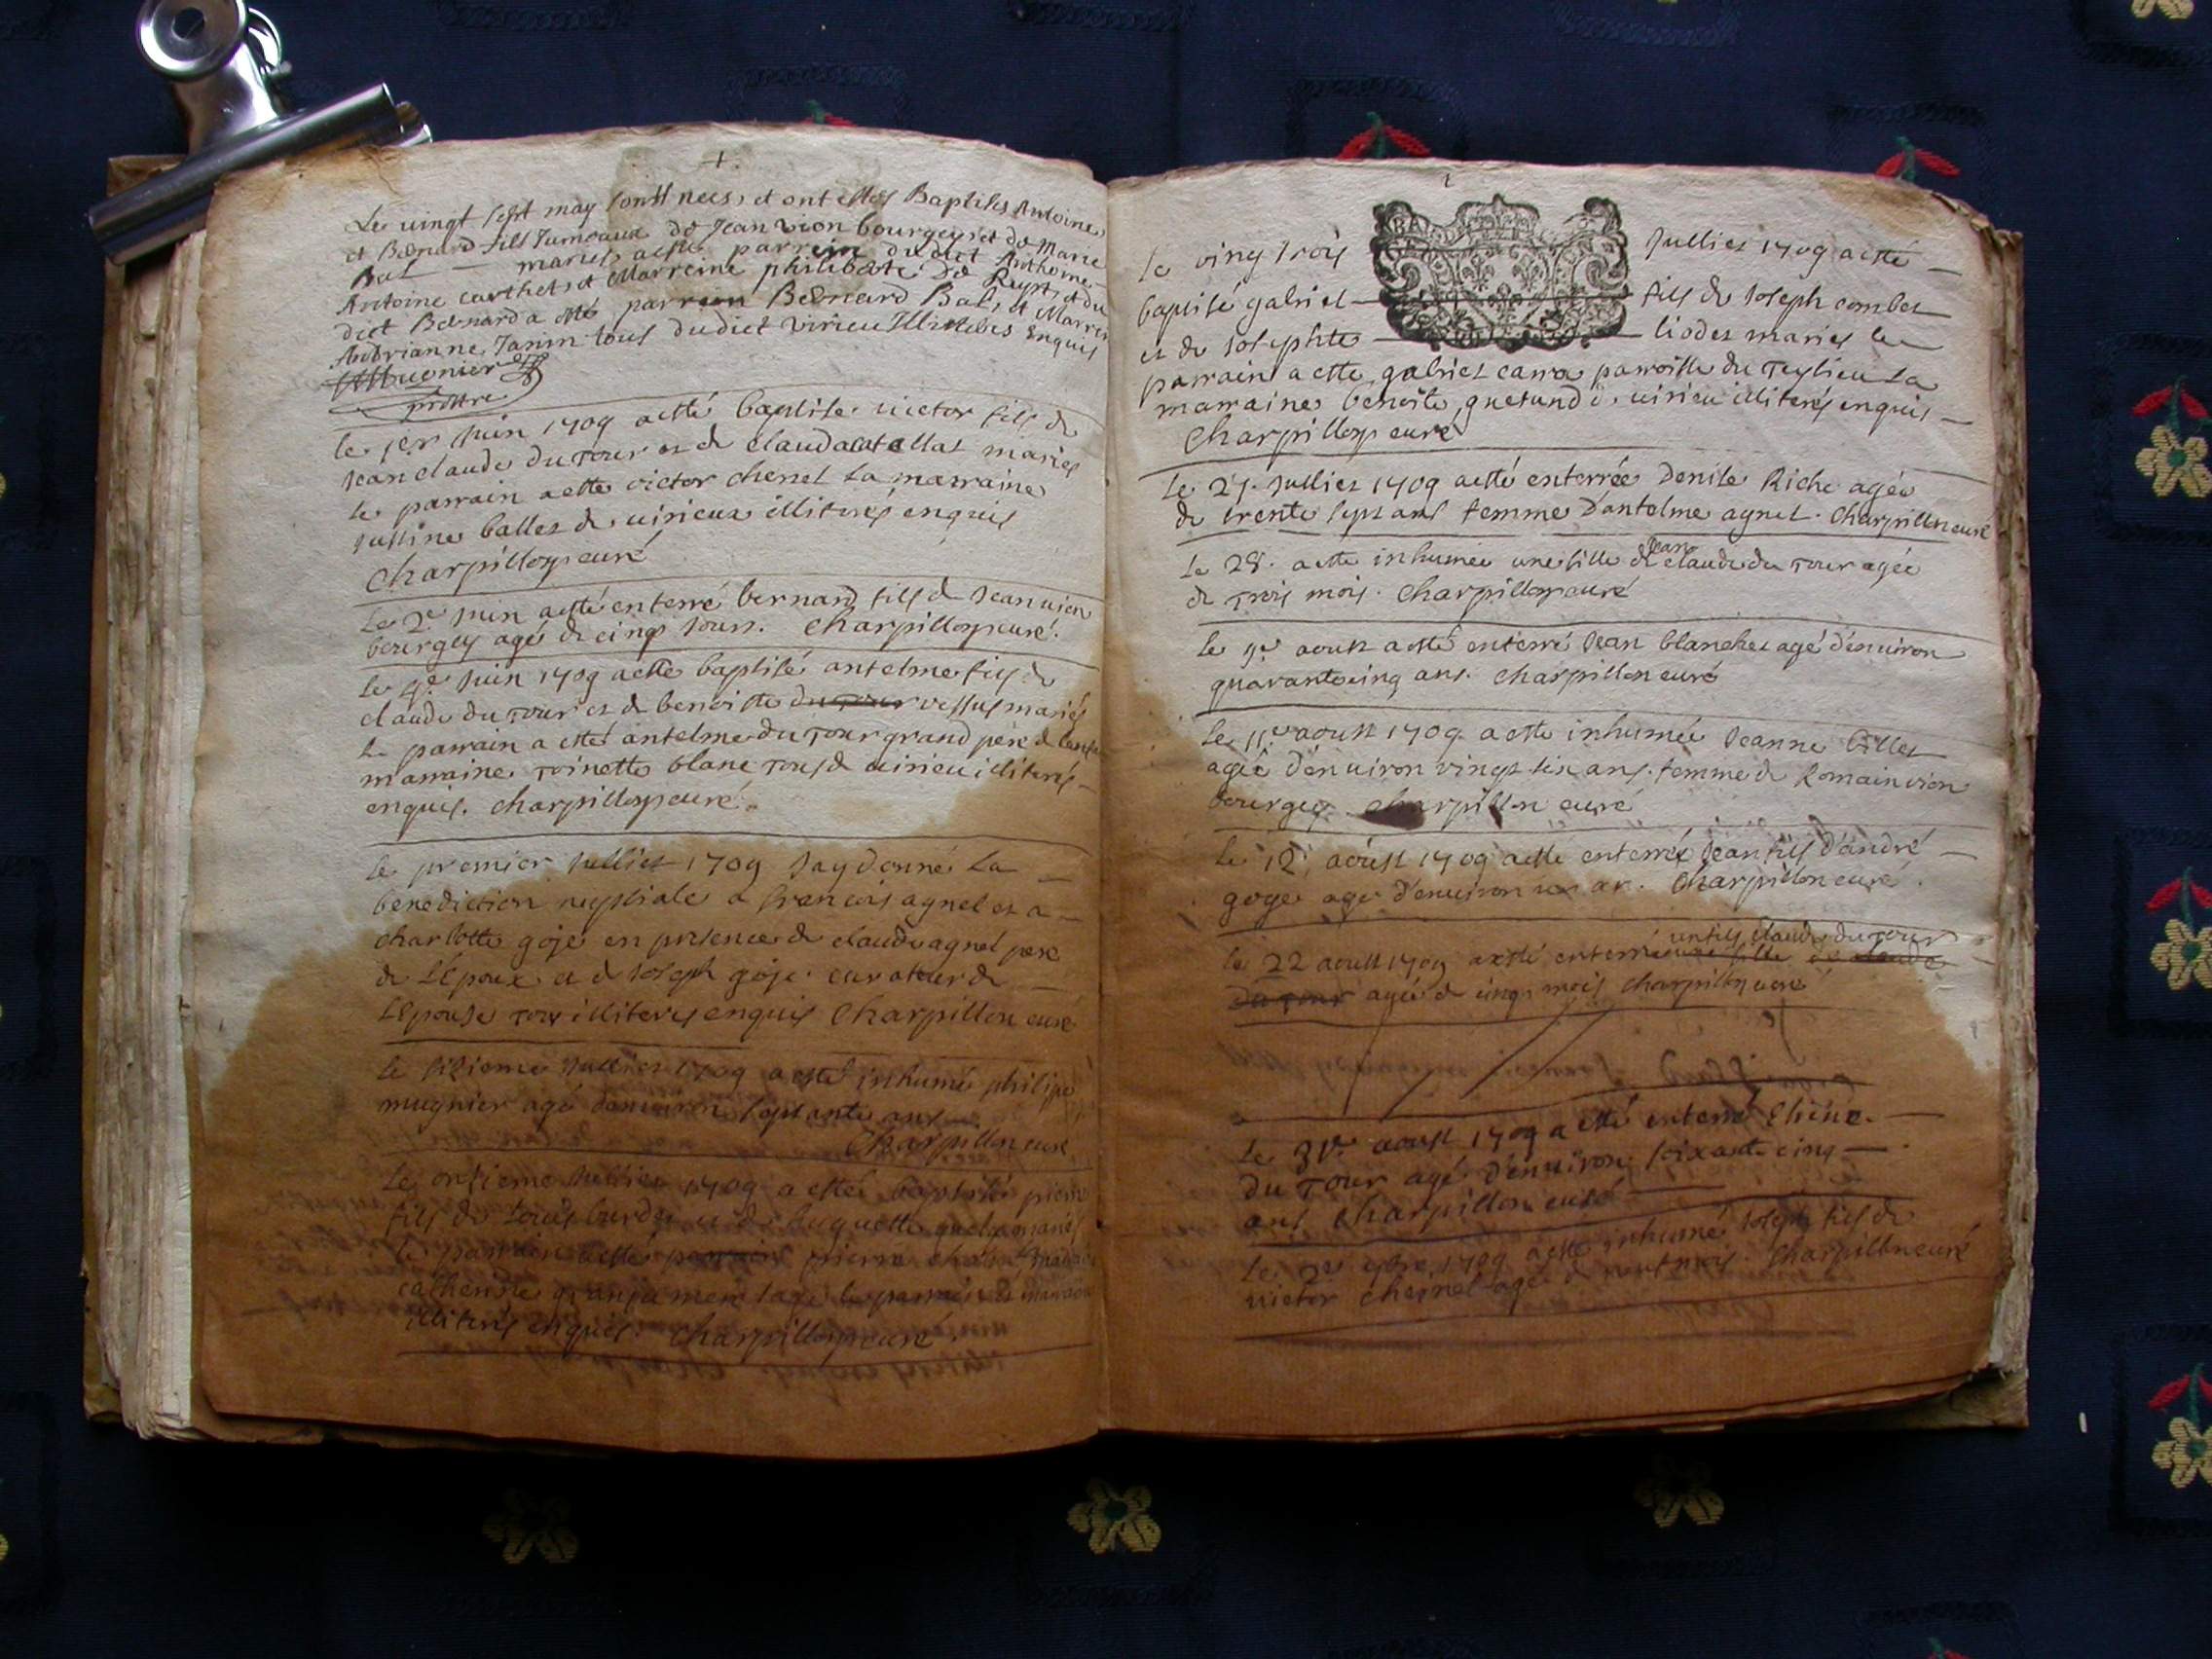 Le vingt sept may sont nees, et ont estes Baptises Antoine
et Bernard fils Jumeaux de Jean vion bourgey et de Marie
Bal mariés, a esté parrein dudict Anthoine
Antoine carthet, et Marreine philiberte de Reyst, et du
dict Bernard a esté parrein Bernard Bal, et Marreine
Andrianne Janin tous dudict virieu Illiterés Enquis
Mugnier
prestre
le 1er Juin 1709 a esté baptisé victor fils de
Jean claude du Tour et de clauda catellat mariés
le parrain a esté victor chenel la marraine
justine balles de virieux illiterés enquis
Charpillon curé
Le 2e Juin a esté enterré bernard fils de Jean vion
bourgey agé de cinq jours. Charpillon curé.
le 4e Juin 1709 a esté baptisé antelme fils de
claude du Tour et de benoiste du Tour vessus mariés
Le parrain a esté antelme du Tour grand père de
marraine Toinette blanc Tous de virieu illiterés
enquis. Charpillon curé
Le premier Juillet 1709 Jay donné La
benediction nuptiale a francois agnel et a
charlotte goje en presence de claude agnel pere
de L'Epoux et de Joseph goje curateur de
LEpouse Tous illiteres enquis Charpillon curé
Le sizieme Juillet 1709 a esté inhumé philipe
mugnier agé denviron septante ans
Charpillon curé
Le onzieme Juillet 1709 a esté baptisé pierre
fils de Louis burdey et de huguette mariés
le parrain a esté parrain pierre
catherine
illiterés enquis. Charpillon curé.
Le ving trois Jullies 1709 a esté
baptisé gabriel fils de Joseph combes
et de Josephte liodes mariés le
parrain a esté gabriel carra paroisse du Teylieu La
marraine benoite guetund de virieu illiterés enquis
Charpillon curé
Le 27. Jullies 1709 a esté enterrée Denise Riche agée
de trente sept ans femme d'antelme agnel. Charpillon curé
Le 28. a esté inhumée une fille de Jean claude du Tour agée
de Trois mois. Charpillon curé
Le 9e aoust a esté enterré Jean blanchet agé d'environ
quarante cinq ans. Charpillon curé
Le 11e aoust 1709 a esté inhumée Jeanne billet
agée d'environ vingt six ans. femme de Romain vion
bourgey Charpillon curé
Le 12 aoust 1709 a esté enterré Jean fils d'andré
goge agé d'environ un an. Charpillon curé.
un fils claude du Tour
Le 22 aoust 1709 a esté enterré une fille de claude
du Tour agée de cinq mois Charpillon curé
Le 31e aoust 1709 a esté enterré Etiene
du Tour agé d'environ soixante cinq
ans Charpillon curé
Le 2e 7bre 1709 a esté inhumé Joseph fils de
victor chenel agé de mois. Charpillon curé